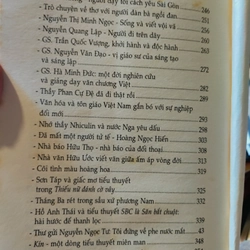 người bạn yêu Sài Gòn 246
- Trò chuyện về thơ với người đàn bà ngồi đan
261
- Nguyễn Thị Minh Ngọc - Sống và viết vội vã
- Nguyễn Quang Lập - Người đi trên dây
- GS. Trần Quốc Vượng, khởi hành và độc hành
- GS. Nguyễn Văn Đạo - vị giáo sư của sáng tạo
và sáng lập 282
- GS. Hà Minh Đức: một đời nghiên cứu
và giảng dạy văn chương Việt 291
- Thầy Phan Cự Đệ đã đi thật rồi
- Văn hóa và tôn giáo Việt Nam gắn bó với sự nghiệp
đổi mới
- Nhớ thầy Nhiculin và nước Nga yêu dấu
- Đã mất một người tử tế - Hoàng Ngọc Hiến
- Nhà báo Hữu Thọ - Những điều còn lại
- Nhà văn Hữu Ước viết văn giữa ấm áp vòng đời
- Cõi tình màu hoàng hoa
- Sơn Táp và giấc mơ tiểu thuyết
trong Thiếu nữ đánh cờ vây 325
- Tháng Ba rét trong xứ sở phương Nam 332
- Hồ Anh Thái và tiểu thuyết SBC là Săn bắt chuột:
hài hước để thanh lọc 339
- Thư gửi Nguyễn Ngọc Tư: Tôi đứng về phe nước mắt 343
- Kín - một dòng tiểu thuyết miên man 348